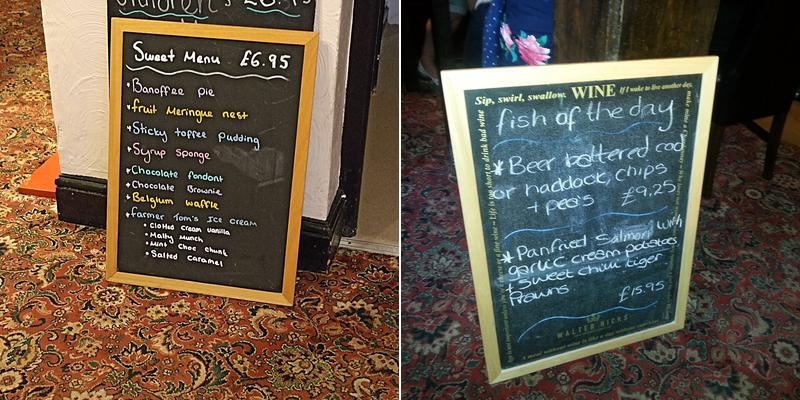 Children's £6.95
Sweet Menu £6.95
Banoffee pie
fruit Meringue nest
Sticky toffee pudding
Syrup sponge
Chocolate fondant
Chocolate Brownie
Belgium waffle
farmer Tom's Ice cream
Clotted cream vanilla
Malty Munch
Mint Choc chunk
Salted Caramel
Sip, swirl, swallow. WINE If I wake to live another day,
fish of the day
* Beer battered cod
or haddock, chips
+ peas £9.25
* Panfried Salmon with
garlic cream potatoes
+ Sweet chilli tiger
Prawns £15.95
WALTER HICKS
A meal without wine is like a day without sunshine